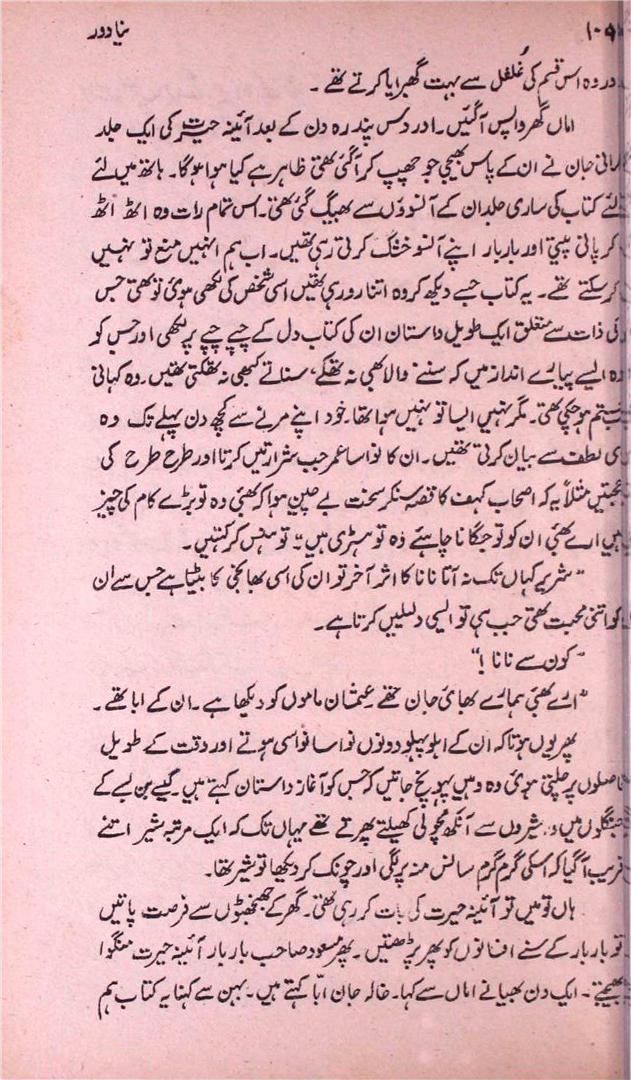 ۱۰۹ نیا دور
در وہ اس قسم کی غُلغُل سے بہت گھبرایا کرتے تھے ۔
اماں گھر واپس آگئیں۔ اور دس پندرہ دن کے بعد آئینہ حیرت کی ایک جلد
جان نے ان کے پاس بھیجی جو چھپ کر آگئی تھی ظاہر ہے کیا ہوا ہوگا۔ ہاتھ میں لئے
لئے کتاب کی ساری جلد ان کے آنسوؤں سے بھیگ گئی تھی۔ اس تمام رات وہ اٹھ اٹھ
کر پانی پیتی اور بار بار اپنے آنسو خشک کرتی رہی تھیں۔ اب ہم انہیں منع تو نہیں
کر سکتے تھے ۔ یہ کتاب جسے دیکھ کر وہ اتنا رو رہی تھیں اسی شخص کی لکھی ہوئی تو تھی جس
کی ذات سے متعلق ایک طویل داستان ان کی کتاب دل کے چپے چپے پر لکھی اور جس کو
وہ ایسے پیارے انداز میں کہ سننے والا بھی نہ تھکے، سناتے کبھی نہ تھکتی تھیں۔ وہ کہانی
ختم ہو چکی تھی۔ مگر نہیں ایسا تو نہیں ہوا تھا۔ خود اپنے مرنے سے کچھ دن پہلے تک وہ
لطف سے بیان کرتی تھیں۔ ان کا نواسا عمر جب شرارتیں کرتا اور طرح طرح کی
مثلاً یہ کہ اصحاب کہف کا قصہ سنکر سخت بے چین ہوا کہ بھئی وہ تو بڑے کام کی چیز
ہیں ارے بھئی ان کو تو جگانا چاہئے وہ تو ہسٹری ہیں" تو ہنس کر کہتیں۔
"شریر کہاں تک نہ آتا نانا کا اثر آخر تو ان کی اسی بھانجی کا بیٹا ہے جس سے ان
کو اتنی محبت تھی جب ہی تو ایسی دلیلیں کرتا ہے۔
"کون سے نانا !"
"ارے بھئی ہمارے بھائی جان تھے عیشان ماموں کو دیکھا ہے۔ ان کے ابا تھے ۔
پھر یوں ہوتا کہ ان کے اہلو پہلو دونوں نواسا نواسی ہوتے اور وقت کے طویل
فاصلوں پر چلتی ہوئی وہ وہیں پہونچ جاتیں کہ جس کو آغاز داستان کہتے ہیں۔ کیسے بن کے
جنگلوں میں وہ شیروں سے آنکھ مچولی کھیلتے پھرتے تھے یہاں تک کہ ایک مرتبہ شیر اتنے
قریب آگیا کہ اسکی گرم گرم سانس منہ پر لگی اور چونک کر دیکھا تو شیر تھا۔
ہاں تو میں تو آئینہ حیرت کی بات کر رہی تھی۔ گھر کے جھنجھٹوں سے فرصت پاتیں
تو بار بار کے سنے افسانوں کو پھر پڑھتیں۔ پھر مسعود صاحب بار بار آئینہ حیرت منگوا
بھیجتے ۔ ایک دن بھیا نے اماں سے کہا۔ خالہ جان ابا کہتے ہیں۔ بہن سے کہنا یہ کتاب ہم